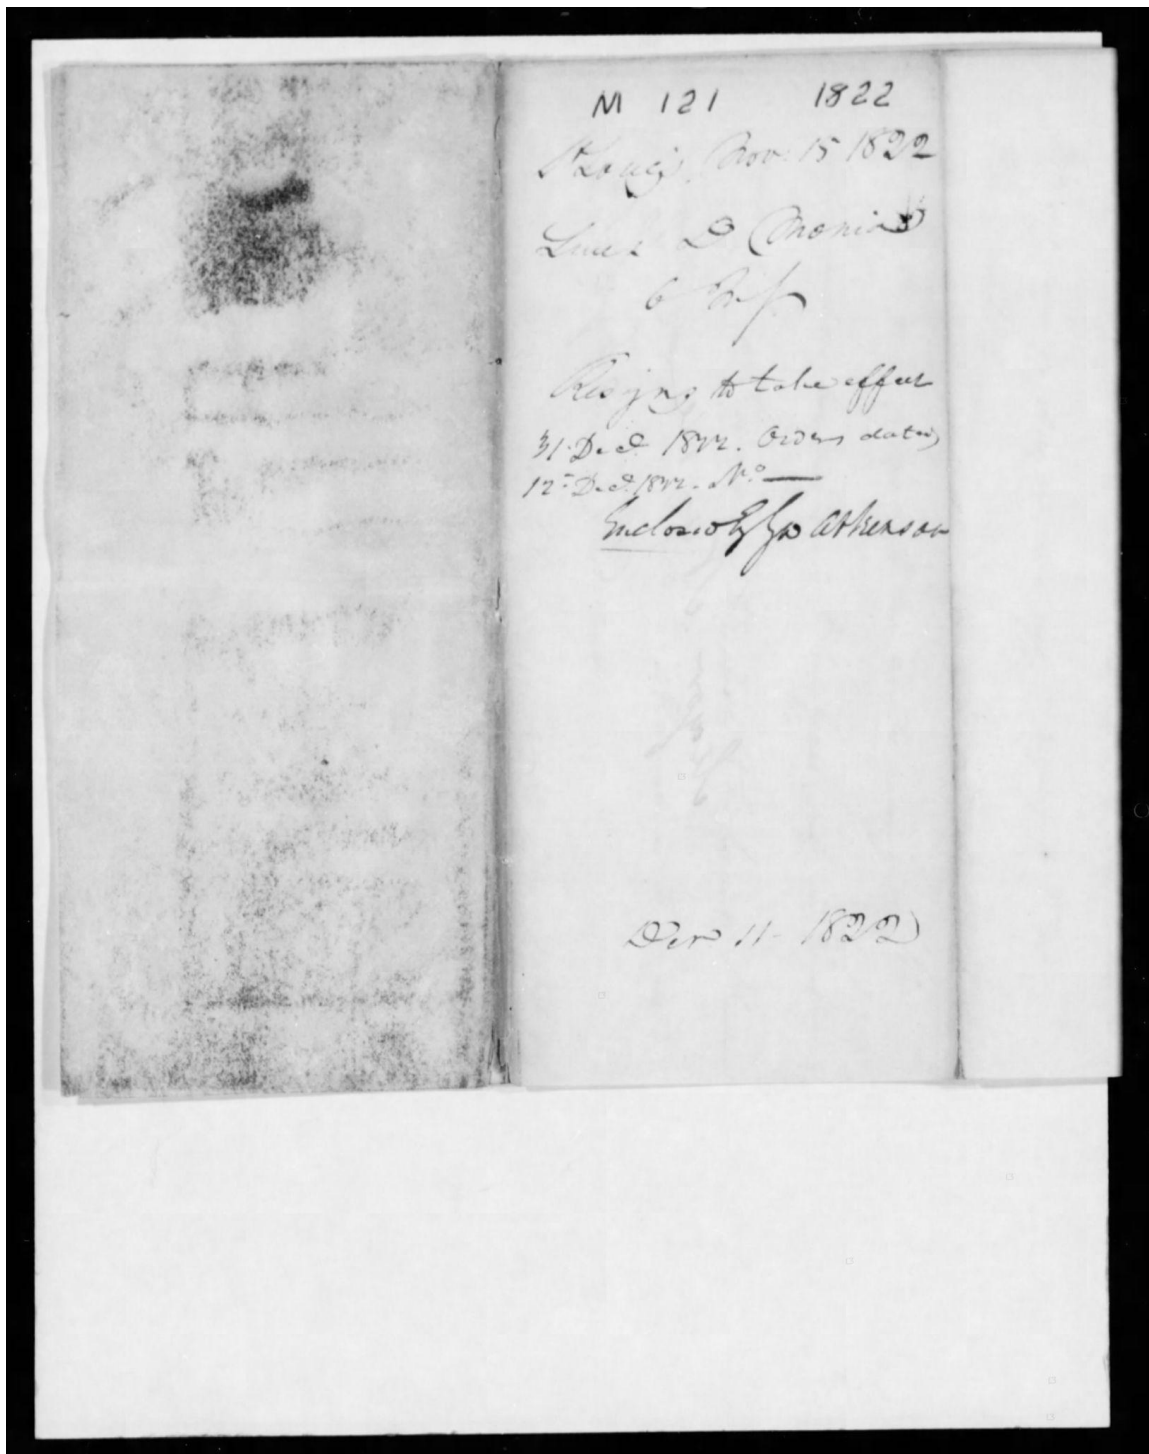 M 121 1822
St Louis Nov. 15 1822
Lieut D Moniac
6 Inf
Resigns to take effect
31. Decr. 1822. Orders dated
12th Decr. 1822. No. —
Enclosed by Gen Atkinson
Decr 11 1822